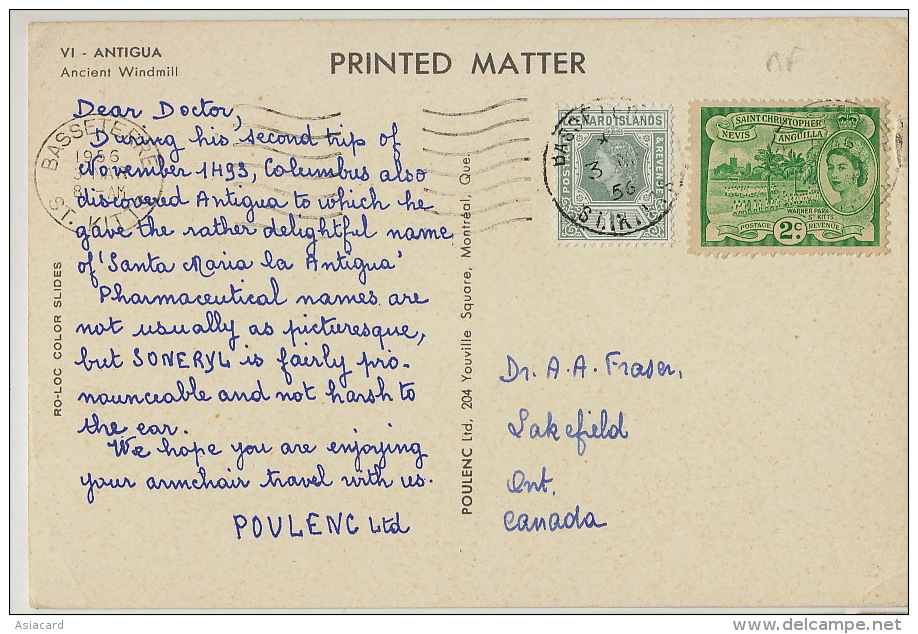 VI - ANTIGUA
Ancient Windmill
PRINTED MATTER
Dear Doctor,
During his second trip of
November 1493, Columbus also
discovered Antigua to which he
gave the rather delightful name
of 'Santa Maria la Antigua'
Pharmaceutical names are
not usually as picturesque,
but SONERYL is fairly pro-
nounceable and not harsh to
the ear.
We hope you are enjoying
your armchair travel with us.
POULENC Ltd
BASSETERRE
1956
AM
ST. KITTS
RO-LOC COLOR SLIDES
POULENC Ltd, 204 Youville Square, Montréal, Que.
LEEWARD ISLANDS
POSTAGE
& REVENUE
56
ST. KITTS
SAINT CHRISTOPHER
NEVIS
ANGUILLA
WARNER PARK
ST KITTS
POSTAGE 2c REVENUE
Dr. A. A. Fraser,
Lakefield
Ont.
Canada
Asiacard
delcampe.net